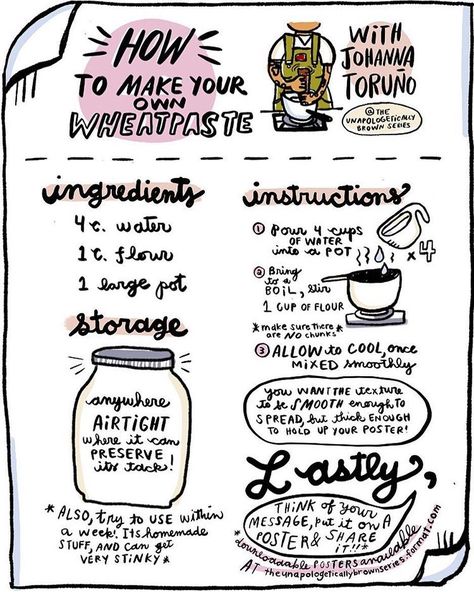 HOW
TO MAKE YOUR
OWN
WHEATPASTE
WITH
JOHANNA
TORUÑO
@THE
UNAPOLOGETICALLY
BROWN SERIES
ingredients
4 c. water
1 c. flour
1 large pot
storage
anywhere
AIRTIGHT
where it can
PRESERVE
its tack!
*ALSO, try to USE within
a week! Its homemade
STUFF, AND can get
VERY STINKY*
instructions
① Pour 4 cups
OF WATER
into a POT
×4
② Bring
to a
BOIL, stir
1 CUP OF FLOUR
*make sure there*
are NO chunks
③ ALLOW to COOL, once
MIXED smoothly
you WANT the texture
to be SMOOTH enough to
SPREAD, but thick ENOUGH
TO HOLD UP YOUR POSTER!
Lastly,
THINK of your
MESSAGE, put it on A
POSTER & SHARE
it!!
*downloadable posters available
AT theunapologeticallybrownseries.format.com*